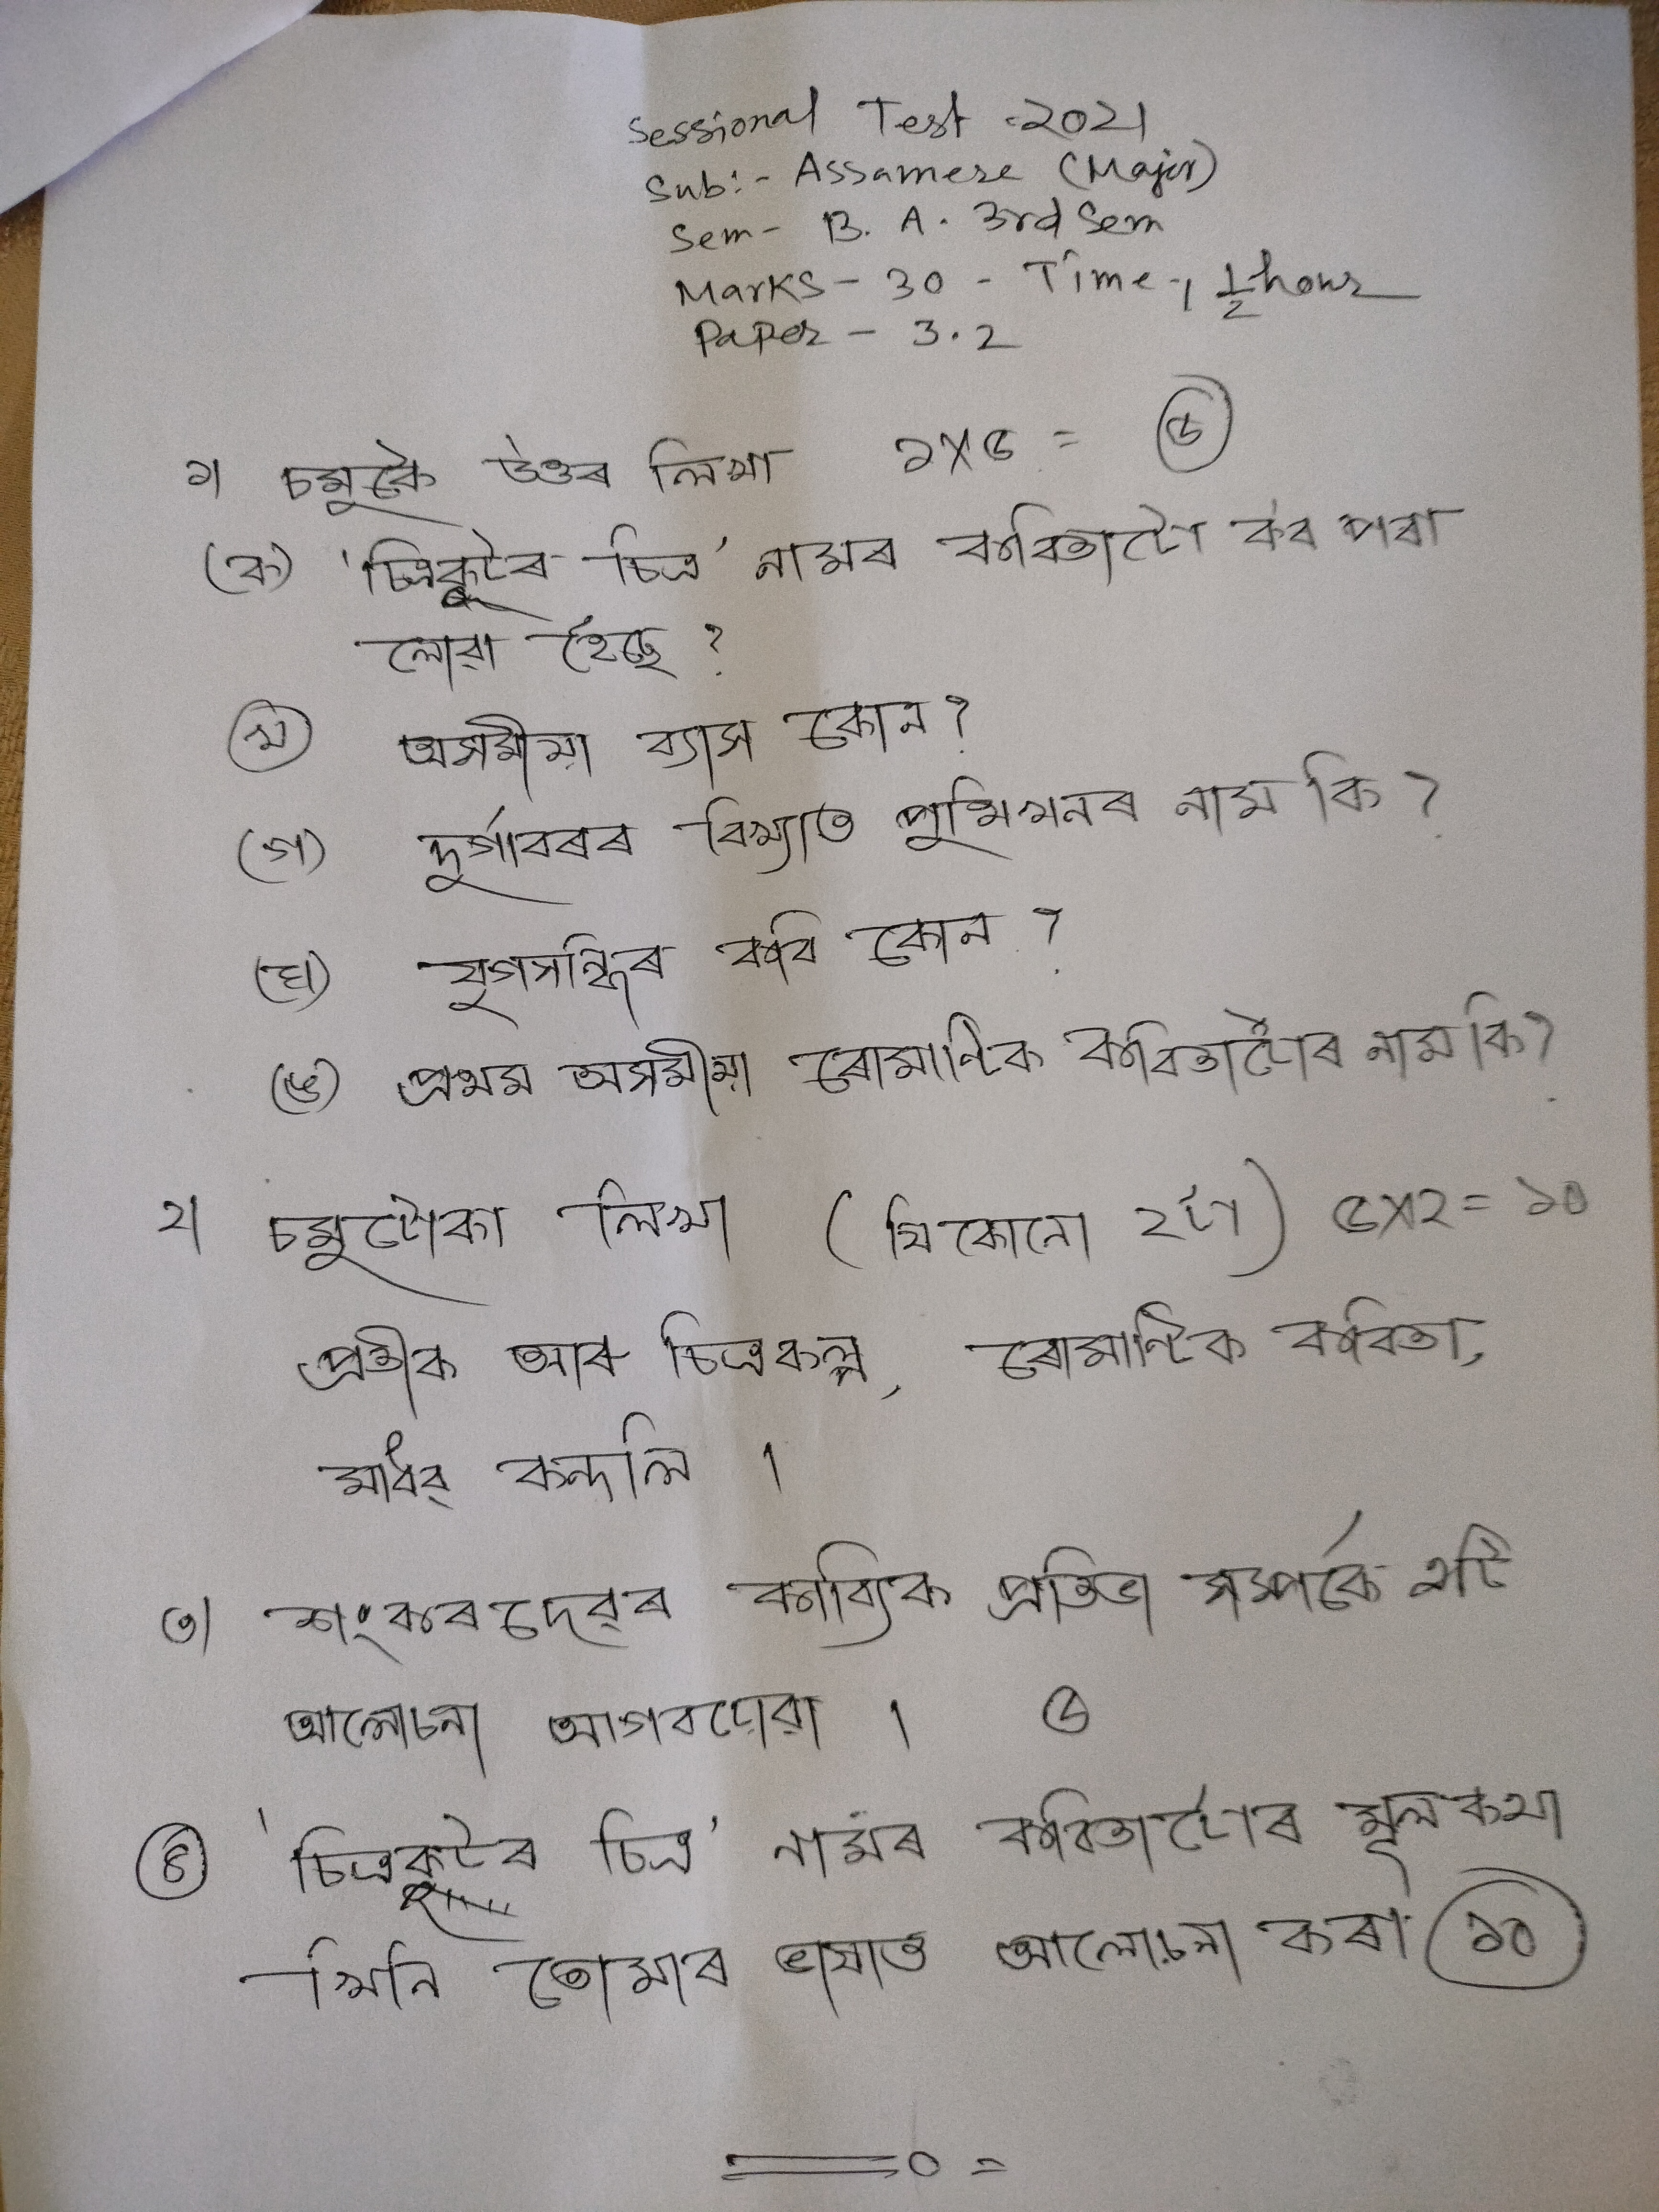 Sessional Test - 2021
Sub:- Assamese (Major)
Sem- B. A. 3rd Sem
Marks - 30 - Time - 1 1/2 hour
Paper - 3.2
১। চমুকৈ উত্তৰ লিখা ১X৫ = ৫
(ক) 'চিত্ৰকূটৰ চিত্ৰ' নামৰ কবিতাটো ক'ৰ পৰা
লোৱা হৈছে ?
(খ) অসমীয়া ব্যাস কোন ?
(গ) দুৰ্গাবৰৰ বিখ্যাত পুথিখনৰ নাম কি ?
(ঘ) যুগসন্ধিৰ কবি কোন ?
(ঙ) প্ৰথম অসমীয়া ৰোমাণ্টিক কবিতাটোৰ নাম কি ?
২। চমুটোকা লিখা (যিকোনো ২টা) ৫X২ = ১০
প্ৰতীক আৰু চিত্ৰকল্প, ৰোমাণ্টিক কবিতা,
মাধৱ কন্দলি ।
৩। শংকৰদেৱৰ কাব্যিক প্ৰতিভা সম্পৰ্কে এটি
আলোচনা আগবঢ়োৱা । ৫
৪ 'চিত্ৰকূটৰ চিত্ৰ' নামৰ কবিতাটোৰ মূলকথা
খিনি তোমাৰ ভাষাত আলোচনা কৰা ১০